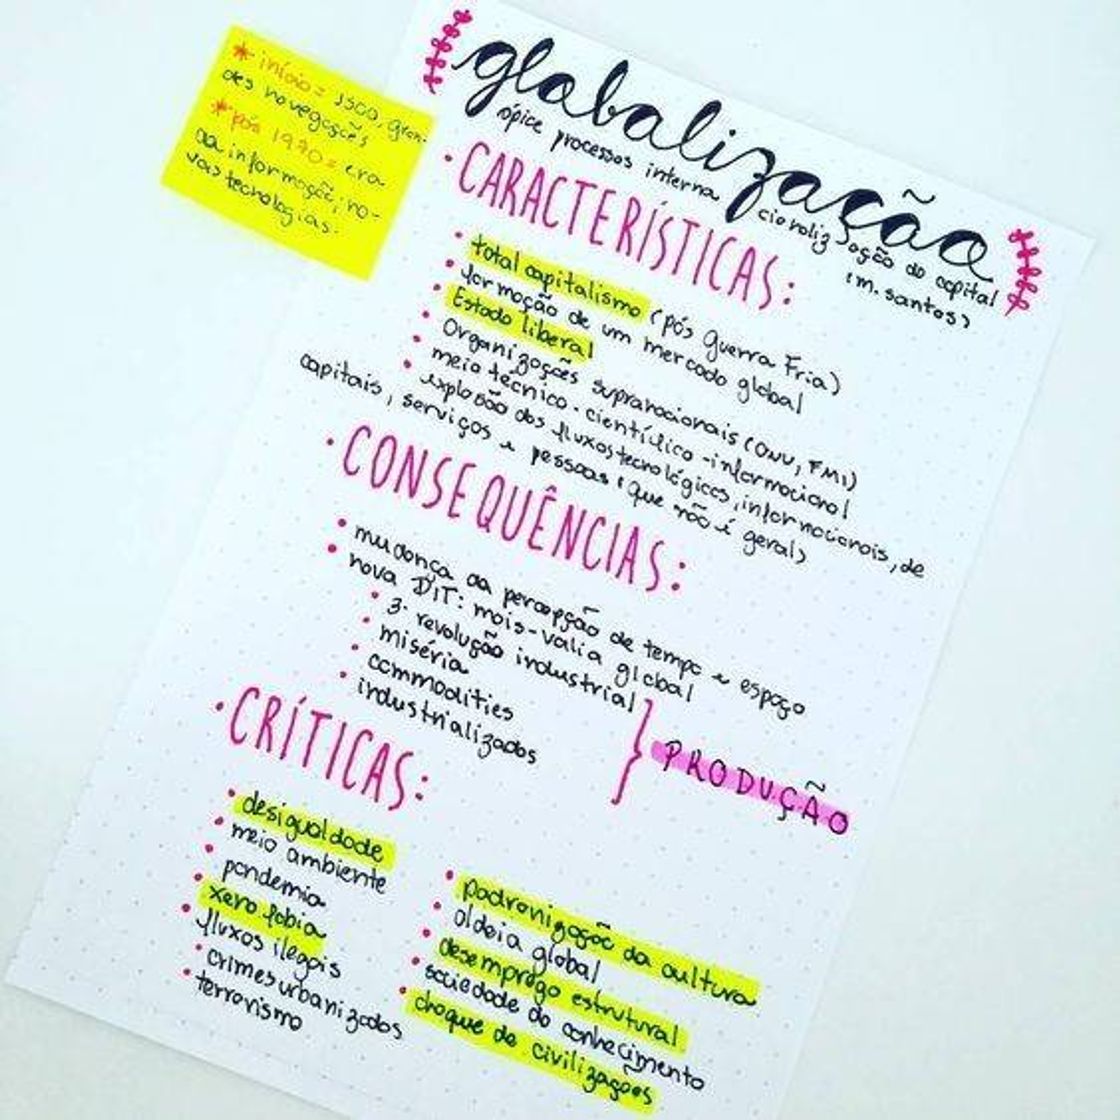 * início = 1500, gran-
des navegações
* pós 1970 = era
da informação, no-
vas tecnologias.
globalização
ápice processos internacionalização do capital
(m. santos)
• CARACTERÍSTICAS:
• total capitalismo (pós Guerra Fria)
• formação de um mercado global
• Estado liberal
• Organizações supranacionais (ONU, FMI)
• meio técnico-científico-informacional
• explosão dos fluxos tecnológicos, informacionais, de
capitais, serviços e pessoas (que não é geral)
• CONSEQUÊNCIAS:
• mudança da percepção de tempo e espaço
• nova DIT: mais-valia global
• 3ª revolução industrial
• miséria
• commodities
• industrializados
} PRODUÇÃO
• CRÍTICAS:
• desigualdade
• meio ambiente
• pandemia
• xenofobia
• fluxos ilegais
• crimes urbanizados
• terrorismo
• padronização da cultura
• aldeia global
• desemprego estrutural
• sociedade do conhecimento
• choque de civilizações